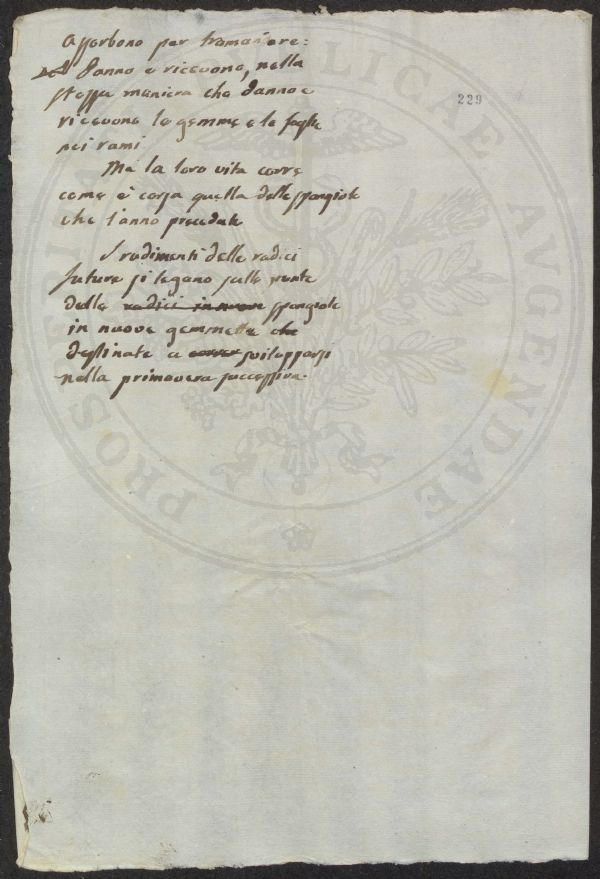 assorbono per tramandare:
danno e ricevono, nella
stessa maniera che danno e
ricevono le gemme e le foglie
nei rami
Ma la loro vita corre
come è corsa quella delle spongiole
che l'anno precedute
I rudimenti delle radici
future si legano sulle punte
delle radici in nuov spongiole
in nuove gemmette che
destinate a correr svilupparsi
nella primavera successiva.
229
PROSPERITATI PUBLICAE AUGENDAE